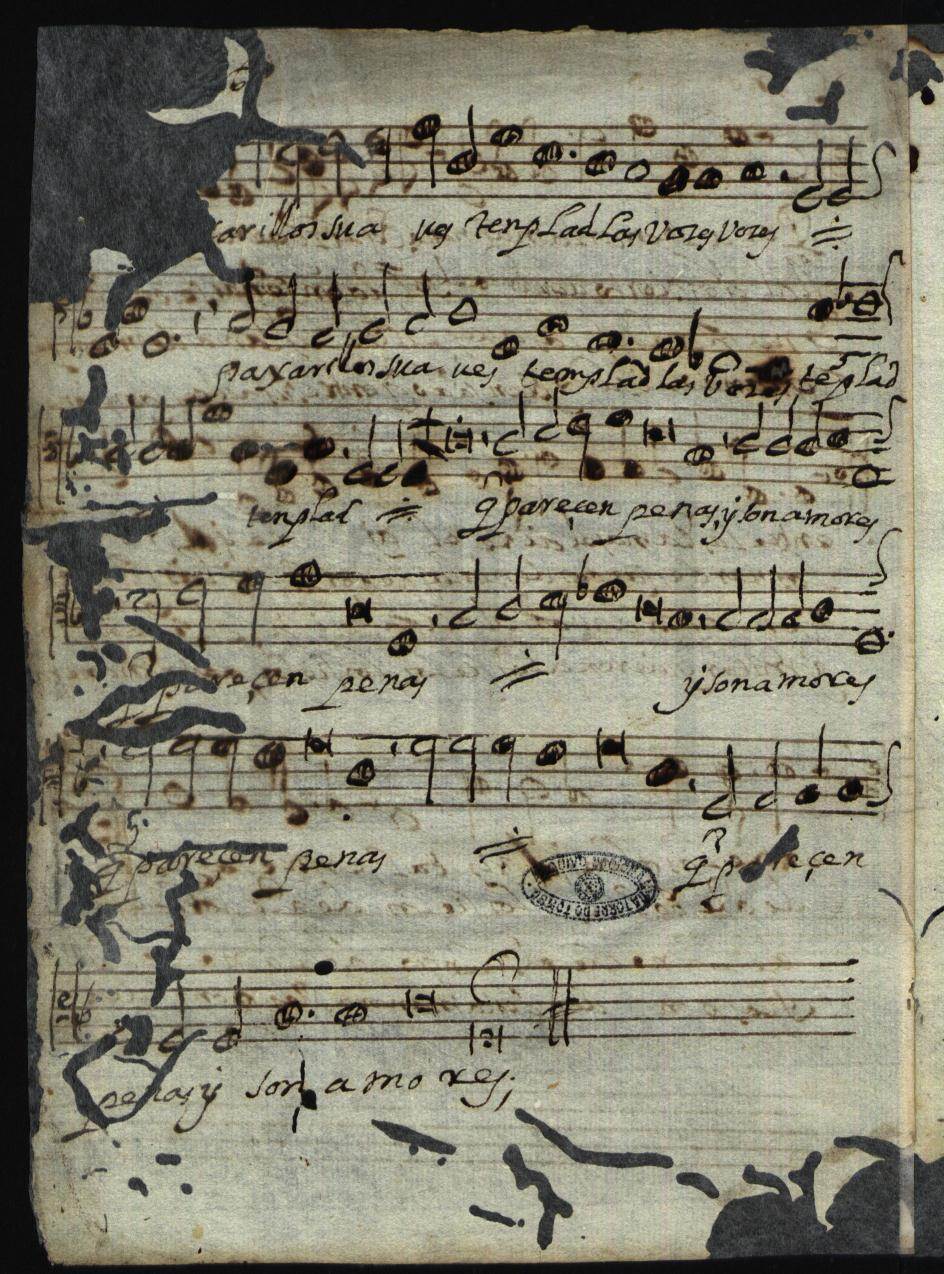 arillos sua ues templad las vozes vozes
paxarillos sua ues templad las vozes, teplad
templad q̃ pareçen penas, y son amores
pareçen penas y son amores
q̃ pareçen penas q̃ pareçen
penas y son amores;